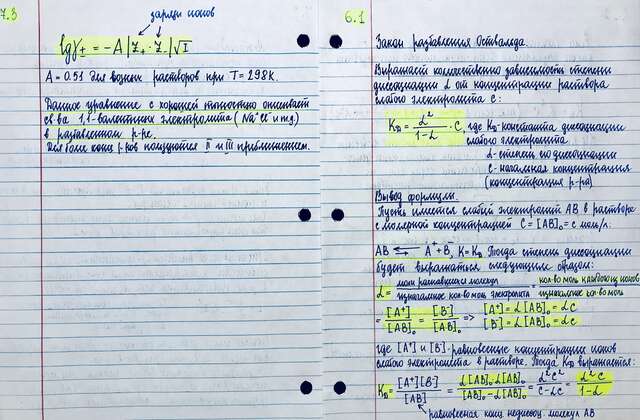 7.3
заряды ионов
lgγ± = -A |Z₊·Z₋|√I
A = 0.51 для водных растворов при T = 298K.
Данное уравнение с хорошей точностью описывает
св-ва 1,1-валентных электролитов (Na⁺Cl⁻ и
в разбавленном р-ре.
Для более конц. р-ров пользуются II и III приближением.
6.1
Закон разбавления Оствальда.
Выражает количественно зависимость степени
диссоциации α от концентрации раствора
слабого электролита C:
K_D = α²/(1-α) · C, где K_D - константа диссоциации
слабого электролита
α - степень его диссоциации
C - начальная концентрация
(концентрация р-ра)
Вывод формулы.
Пусть имеется слабый электролит AB в растворе
с молярной концентрацией C = [AB]₀ = c моль/л.
AB ⇄ A⁺ + B⁻, K = K_D. Тогда степень диссоциации
будет выражаться следующим образом:
α = моли распавшихся молекул / изначальное кол-во моль электролита = кол-во моль каждого из ионов / изначальное кол-во моль
= [A⁺]/[AB]₀ = [B⁻]/[AB]₀ => [A⁺] = α[AB]₀ = αC
[B⁻] = α[AB]₀ = αC
где [A⁺] и [B⁻] - равновесные концентрации ионов
слабого электролита в растворе. Тогда K_D выражается:
K_D = [A⁺][B⁻]/[AB] = α[AB]₀ α[AB]₀/([AB]₀ - α[AB]₀) = α²C²/(C-αC) = α²C/(1-α)
равновесная конц. недиссоц. молекул AB